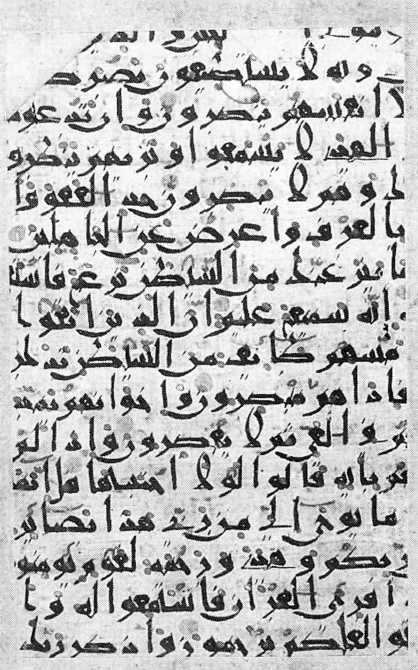 دونه لا يستطيعون نصركم
لا انفسهم ينصرون وان تدعوهم
الهدى لا يسمعوا وتريهم ينظرو
ك وهم لا يبصرون خذ العفو وا
بالعرف واعرض عن الجاهلين
ما ينزغنك من الشيطن نزغ فاستـ
انه سميع عليم ان الذين اتقوا ا
مسهم طائف من الشيطن تذكر
فاذا هم مبصرون واخوانهم يمد
في الغي ثم لا يقصرون واذا لم
تهم باية قالوا لولا اجتبيتها قل انما
ما يوحى الي من ربي هذا بصائر
ربكم وهدى ورحمة لقوم يومنو
ا قرئ القران فاستمعوا له وا
لعلكم ترحمون واذكر ربك